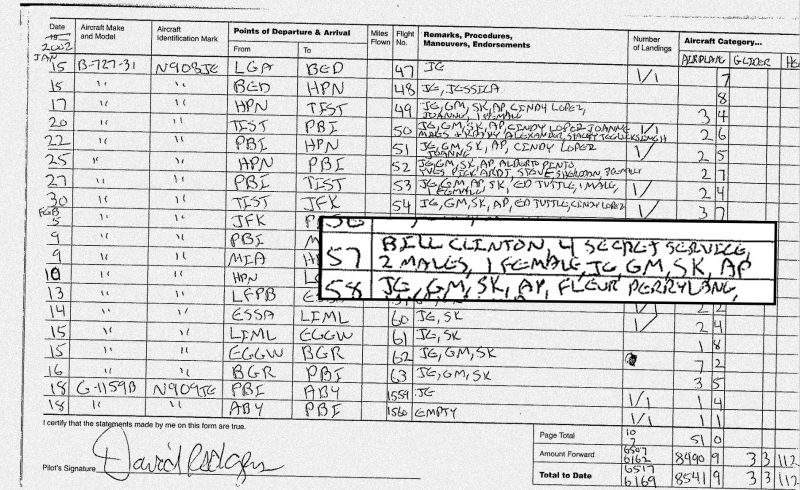 Date Aircraft Make and Model Aircraft Identification Mark Points of Departure & Arrival From To Miles Flown Flight No. Remarks, Procedures, Maneuvers, Endorsements Number of Landings Aircraft Category... AIRPLANE GLIDER
2002
JAN
15 B-727-31 N908JE LGA BED 47 JE 1/1 7
15 " " BED HPN 48 JE, JESSICA 8
17 " " HPN TIST 49 JE, GM, SK, AP, CINDY LOPEZ, 3 4
JOANNE, 1 FEMALE
20 " " TIST PBI 50 JE, GM, SK, AP, CINDY LOPEZ JOANNE 1/1 2 6
22 " " PBI HPN 51 JE, GM, SK, AP, CINDY LOPEZ 1/ 2 5
JOANNE
25 " " HPN PBI 52 JE, GM, SK, AP ALBERTO PINTO 2 7
27 " " PBI TIST 53 JE, GM, AP, SK, ED TUTTLE, 1 MALE, 1/ 2 4
1 FEMALE
30 " " TIST JFK 54 JE, GM, SK, AP, ED TUTTLE, CINDY LOPEZ 1/ 3 7
FEB
5 " " JFK P
9 " " PBI M
9 " " MIA H
10 " " HPN L
13 " " LFPB E 2 2
57 BILL CLINTON, 4 SECRET SERVICE,
2 MALES, 1 FEMALE, JE, GM, SK, AP
58 JE, GM, SK, AP, FLEUR PERRY LANG,
14 " " ESSA LIML 60 JE, SK 1/ 2 4
15 " " LIML EGGW 61 JE, SK 1 8
15 " " EGGW BGR 62 JE, GM, SK 7 2
16 " " BGR PBI 63 JE, GM, SK 3 5
18 G-1159B N909JE PBI ABY 1559 JE 1/1 1 4
18 " " ABY PBI 1560 EMPTY 1/1 1 1
I certify that the statements made by me on this form are true.
Pilot's Signature David Rodgers
Page Total 10 7 51 0
Amount Forward 6507 6162 8490 9 3 3 112
Total to Date 6517 6169 8541 9 3 3 112